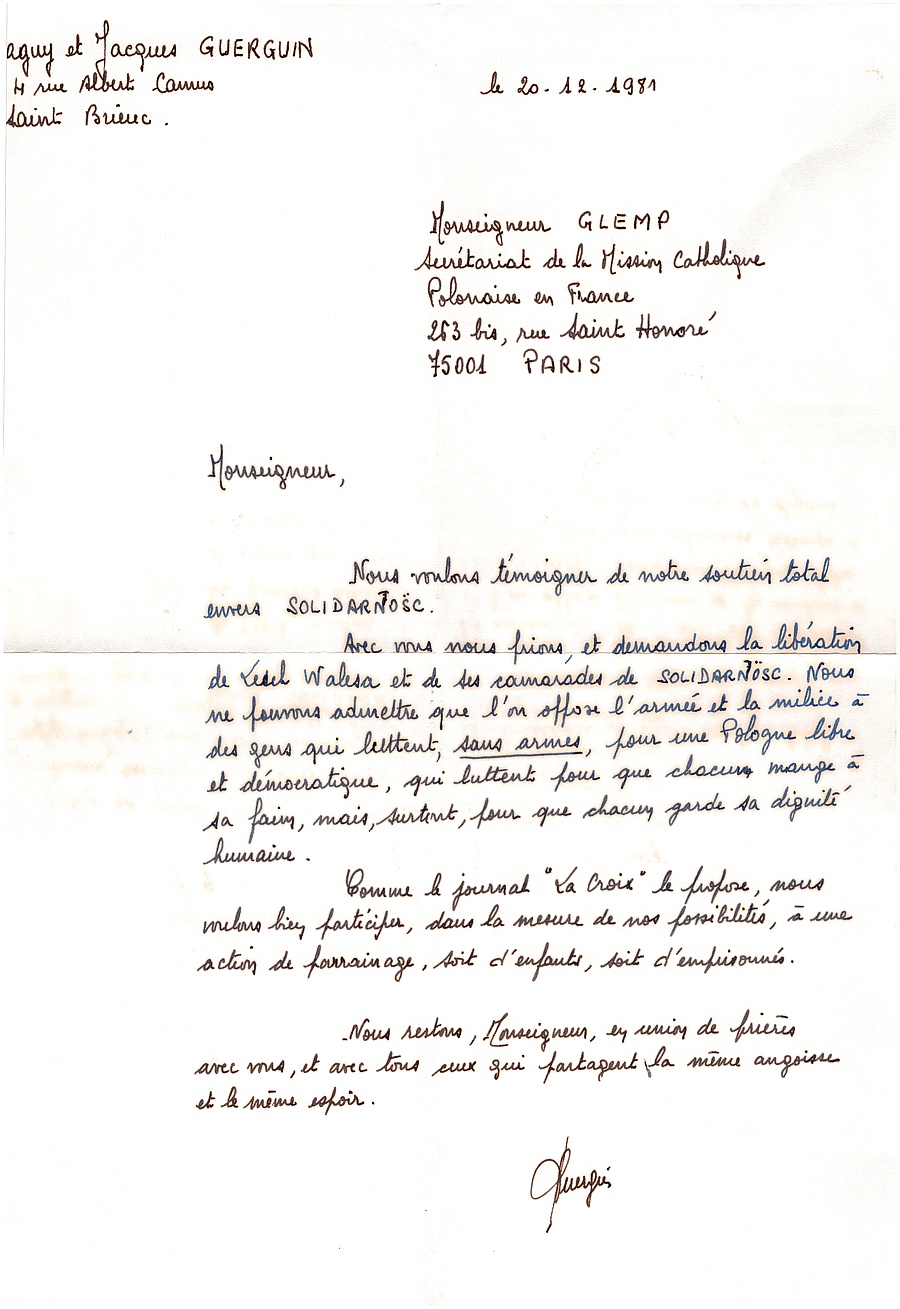 aguy et Jacques GUERGUIN
4 rue Albert Camus
Saint Brieuc.
le 20.12.1981
Monseigneur GLEMP
Secrétariat de la Mission Catholique
Polonaise en France
263 bis, rue Saint Honoré
75001 PARIS
Monseigneur,
Nous voulons témoigner de notre soutien total
envers SOLIDARNOSC.
Avec vous nous prions, et demandons la libération
de Lesch Walesa et de ses camarades de SOLIDARNOSC. Nous
ne pouvons admettre que l'on oppose l'armée et la milice à
des gens qui luttent, sans armes, pour une Pologne libre
et démocratique, qui luttent pour que chacun mange à
sa faim, mais, surtout, pour que chacun garde sa dignité
humaine.
Comme le journal "La Croix" le propose, nous
voulons bien participer, dans la mesure de nos possibilités, à une
action de parrainage, soit d'enfants, soit d'emprisonnés.
Nous restons, Monseigneur, en union de prières
avec vous, et avec tous ceux qui partagent la même angoisse
et le même espoir.
Guerguin